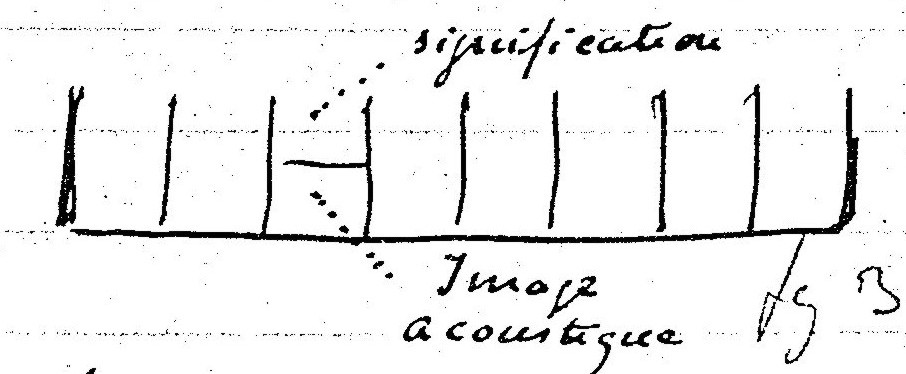 signification
Image
acoustique
fig 3